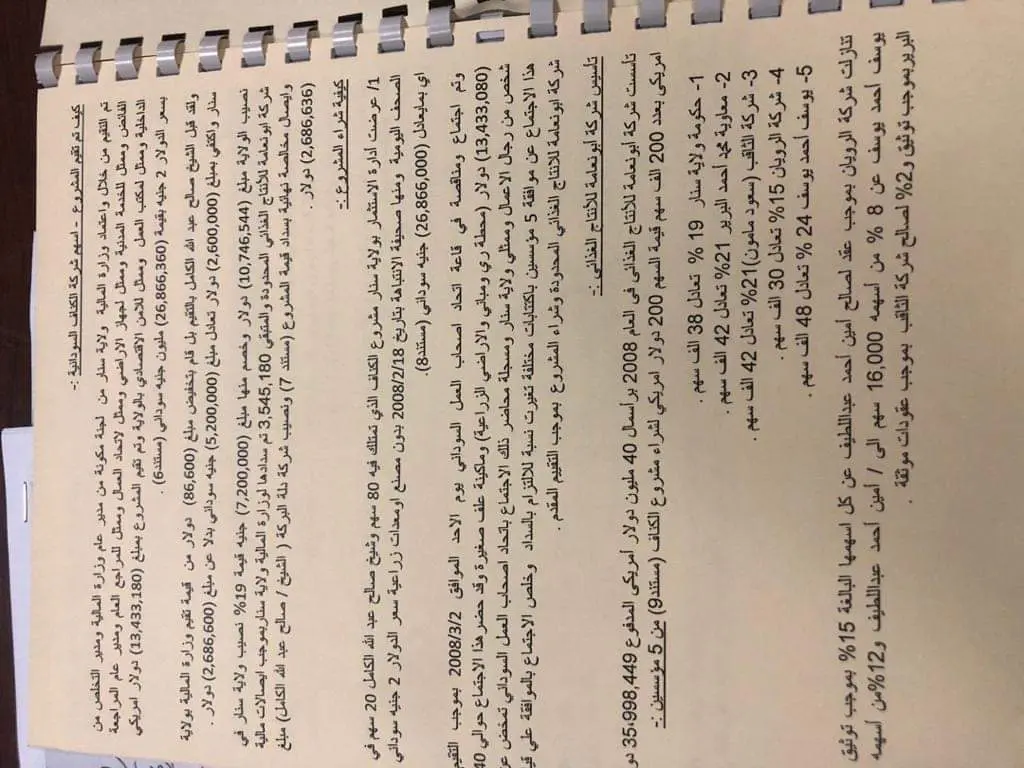 كيف تم تقيم المشروع - اسهم شركة الكناف السودانية :-
تم التقيم من خلال واعتماد وزارة المالية ولاية سنار من لجنة مكونة من مدير عام وزارة المالية ومدير التخلص من
الفائض وممثل للخدمة المدنية وممثل لجهاز الاراضي وممثل لاتحاد العمال وممثل للمراجع العام ومدير عام المراجعة
الداخلية وممثل لمكتب العمل وممثل للامن الاقتصادي بالولاية وتم تقيم المشروع بمبلغ (13,433,180) دولار امريكي
بسعر الدولار 2 جنيه بقيمة (26,866,360) مليون جنيه سوداني (مستند6) .
ولقد قبل الشيخ صالح عبد الله الكامل بالتقيم بل قام بتخفيض مبلغ (86,600) دولار من قيمة تقيم وزارة المالية بولاية
سنار واكتفي بمبلغ (2,600,000) دولار تعادل مبلغ (5,200,000) جنيه سوداني بدلا عن مبلغ (2,686,600) دولار .
نصيب الولاية مبلغ (10,746,544) دولار وخصم منها مبلغ (7,200,000) جنيه قيمة 19% نصيب ولاية سنار في
شركة ابونعامة للانتاج الغذائي المحدودة والمتبقي 3,545,180 تم سدادها لوزارة المالية ولاية سنار بموجب ايصالات مالية
وايصال مخالصة نهائية بسداد قيمة المشروع (مستند 7) ونصيب شركة دلة البركة ( الشيخ / صالح عبد الله الكامل) مبلغ
(2,686,636) دولار .
كيفية شراء المشروع :-
1/ عرضت ادارة الاستثمار بولاية سنار مشروع الكناف الذي تمتلك فيه 80 سهم وشيخ صالح عبد الله الكامل 20 سهم في
الصحف اليومية ومنها صحيفة الانتباهة بتاريخ 2008/2/18 بدون مصنع اومعدات زراعية سعر الدولار 2 جنيه سوداني
اي بمايعادل (26,866,000) جنيه سوداني (مستند8).
وتم اجتماع ومناقصة في قاعة اتحاد اصحاب العمل السوداني يوم الاحد الموافق 2008/3/2 بموجب التقيم
(13,433,080) دولار (محطة ري ومباني والاراضي الزراعية) وماكينة علف صغيرة وقد حضر هذا الاجتماع حوالي 40
شخص من رجال الاعمال وممثلي ولاية سنار ومسجلة محاضر ذلك الاجتماع باتحاد اصحاب العمل السوداني تمخض عن
هذا الاجتماع عن موافقة 5 مؤسسين باكتتابات مختلفة تغيرت نسبة للالتزام بالسداد وخلص الاجتماع بالموافقة علي قيام
شركة ابونعامة للانتاج الغذائي المحدودة وشراء المشروع بموجب التقييم المقدم .
تاسيس شركة أبونعامة للأنتاج الغذائى :-
تاسست شركة أبونعامة للأنتاج الغذائى فى العام 2008 برأسمال 40 مليون دولار أمريكى المدفوع 35،998,449 دو
امريكى بعدد 200 الف سهم قيمة السهم 200 دولار امريكي لشراء مشروع الكناف (مستند9) من 5 مؤسسين :-
1- حكومة ولاية سنار 19 % تعادل 38 الف سهم .
2- معاوية محمد أحمد البرير 21% تعادل 42 الف سهم .
3- شركة الثاقب (سعود مامون)21% تعادل 42 الف سهم .
4- شركة الرويان 15% تعادل 30 الف سهم .
5- يوسف أحمد يوسف 24 % تعادل 48 الف سهم .
تنازلت شركة الرويان بموجب عقد لصالح أمين أحمد عبداللطيف عن كل اسهمها البالغة 15% بموجب توثيق
يوسف أحمد يوسف عن 8 % من أسهمه 16,000 سهم الى / امين أحمد عبداللطيف و12%من أسهمه
البرير بموجب توثيق و2% لصالح شركة الثاقب بموجب عقودات موثقة .